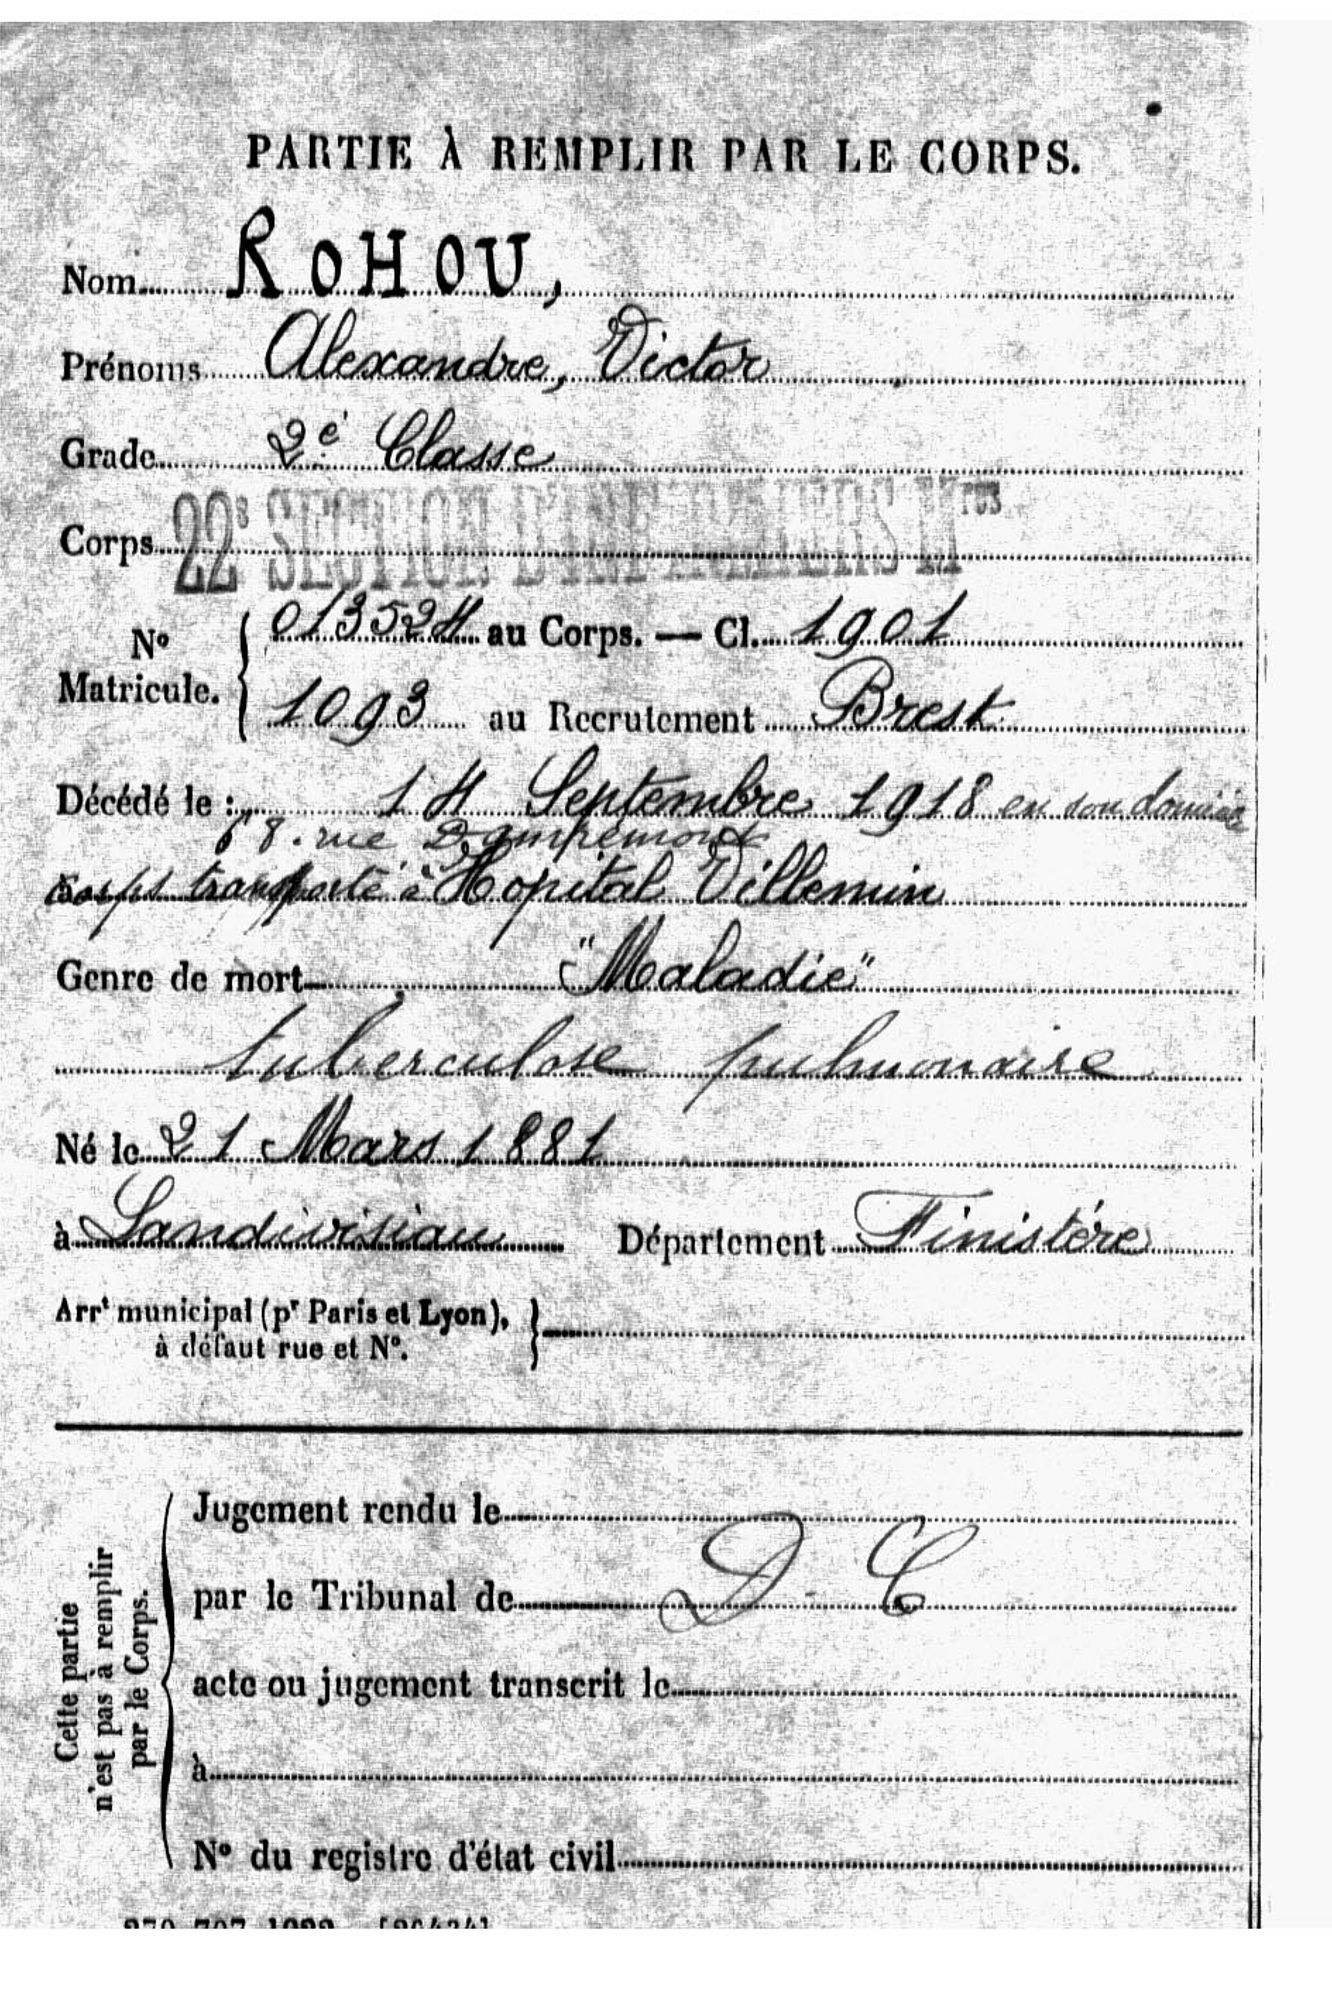 PARTIE À REMPLIR PAR LE CORPS.
Nom ROHOU,
Prénoms Alexandre, Victor
Grade 2e Classe
Corps 22e SECTION D'INFIRMIERS Mres
No Matricule. { 013524 au Corps. — Cl. 1901
1093 au Recrutement Brest
Décédé le : 14 Septembre 1918 en son domicile
68. rue Damrémont
corps transporté à Hopital Villemin
Genre de mort "Maladie"
tuberculose pulmonaire
Né le 21 Mars 1881
à Landivisiau Département Finistére
Arrt municipal (pr Paris et Lyon), }
à défaut rue et No.
Cette partie
n'est pas à remplir
par le Corps.
Jugement rendu le
par le Tribunal de D. C
acte ou jugement transcrit le
à
No du registre d'état civil